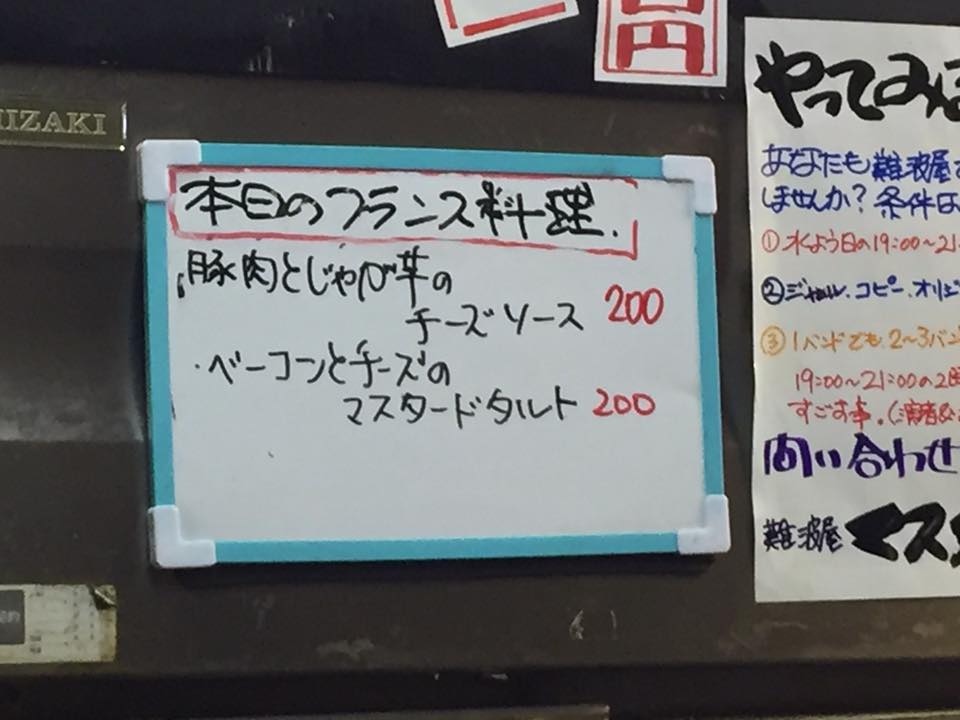 円
IZAKI
本日のフランス料理.
・豚肉とじゃが芋の
チーズソース 200
・ベーコンとチーズの
マスタードタルト 200
やってみ
あなたも難波屋
しませんか?条件は
① 水よう日の19:00〜21:
②ジャンル.コピー.オリジ
③1バンドでも2〜3バン
19:00〜21:00の2時
すごす事.
問い合わせ
難波屋 マス